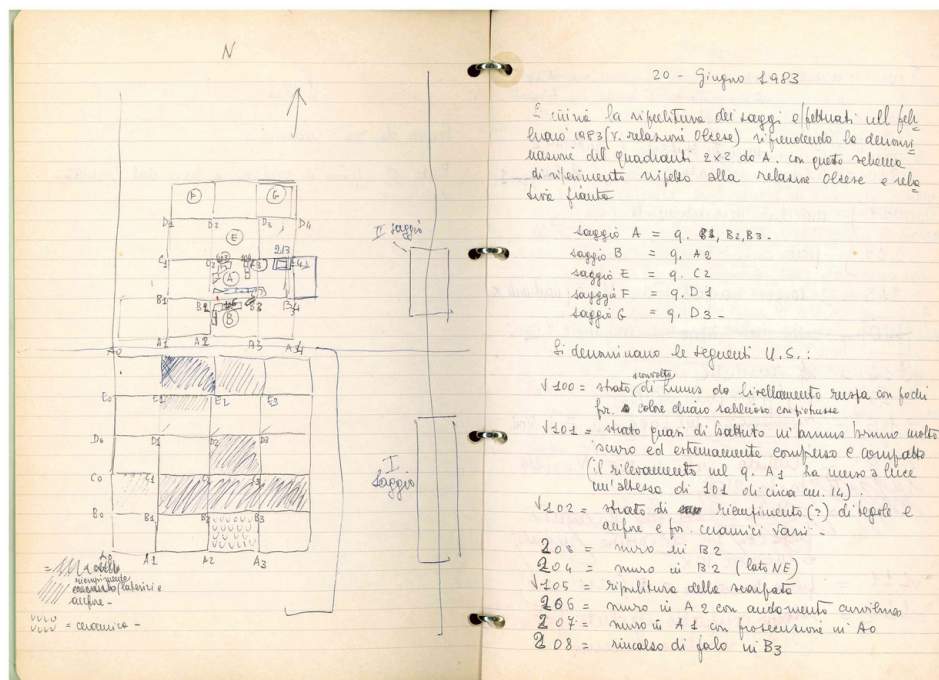 N
F
G
D1
D2
D3
D4
E
II saggio
C1
C2
A
213
B1
B2
106
B3
B4
B
A0
A1
A2
A3
A4
E0
E1
E2
E3
D0
D1
D2
D3
C0
C1
I
saggio
B0
B1
B2
B3
A0
A1
A2
A3
riempimento
laterizi e
anfore -
= ceramica -
20 - Giugno 1983
È iniziata la ripulitura dei saggi effettuati nel feb=
braio 1983 (v. relazione Olcese) riprendendo la denomi=
nazione dei quadranti 2x2 da A. con questo schema
di riferimento rispetto alla relazione Olcese e rela=
tiva pianta
saggio A = q. B1, B2, B3 -
saggio B = q. A2
saggio E = q. C2
saggio F = q. D1
saggio G = q. D3 -
Si denominano le seguenti U.S.:
sconvolto
√ 100 = strato (di humus da livellamento ruspa con pochi
fr. colore chiaro sabbioso con pietruzze
√ 101 = strato quasi di battuto in humus bruno molto
scuro ed estremamente compresso e compatto
(il rilevamento nel q. A1 ha messo a luce
un'altezza di 101 di circa cm. 14).
√ 102 = strato di riempimento (?) di tegole e
anfore e fr. ceramici vari -
203 = muro in B2
204 = muro in B2 (lato NE)
√ 105 = ripulitura della scarpata
206 = muro in A2 con andamento curvilineo
207 = muro in A1 con prosecuzione in A0
208 = rincalzo di palo in B3